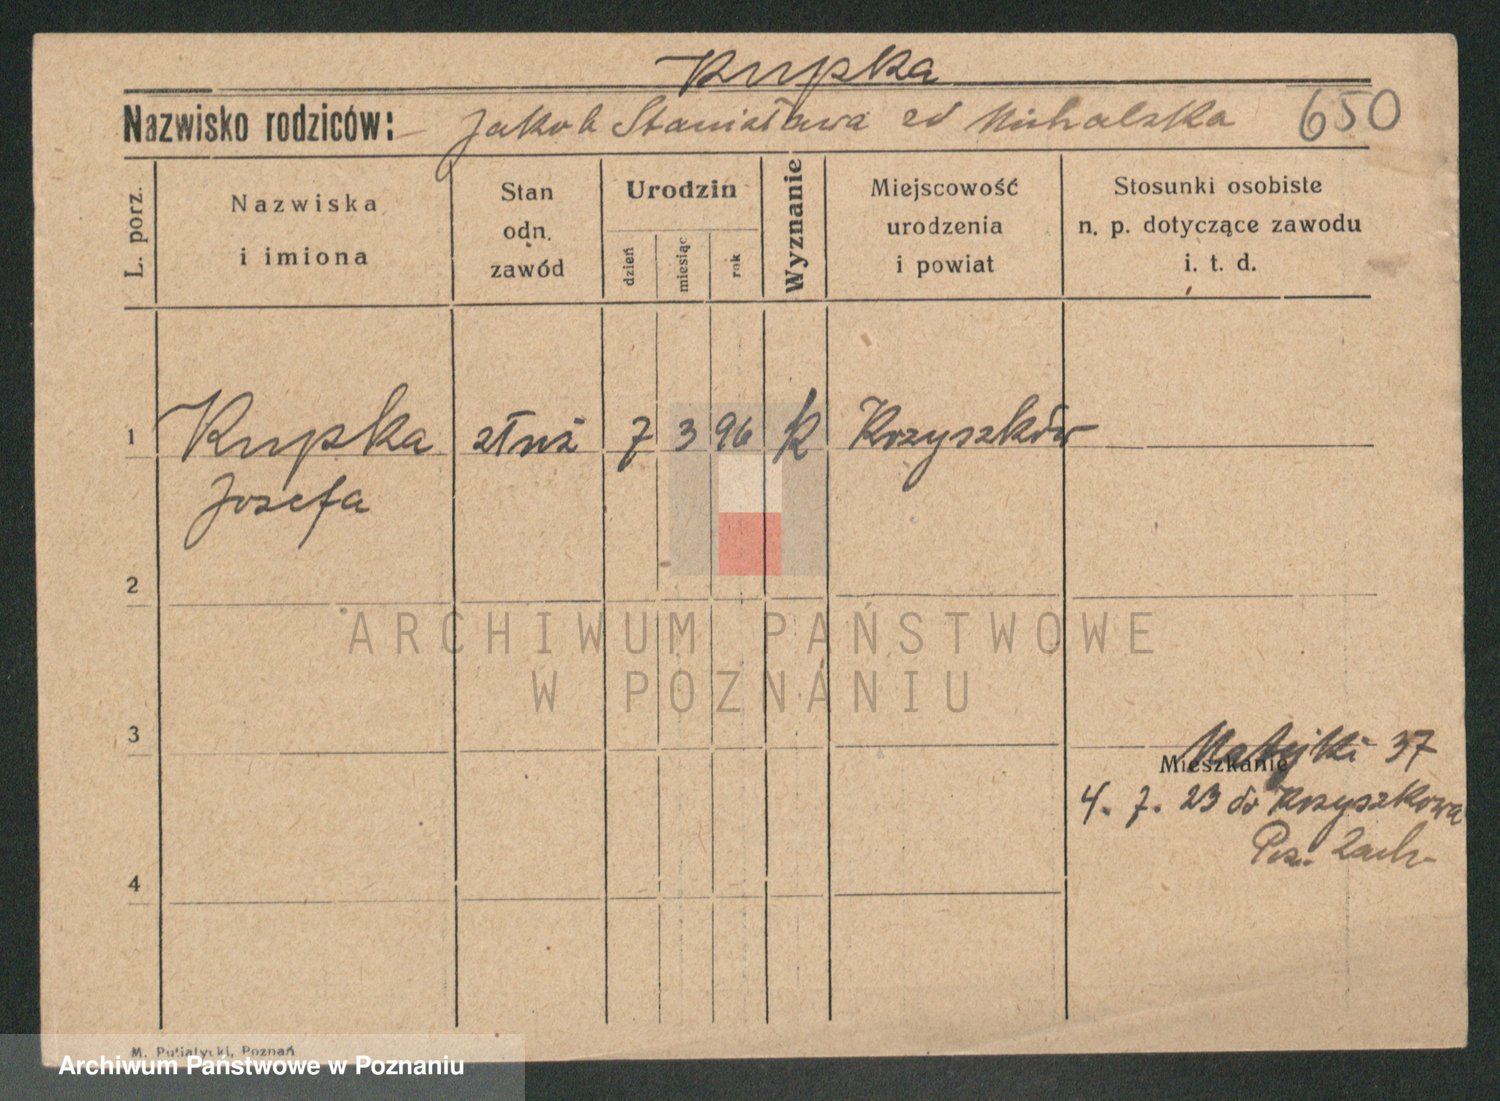 Kupka
Nazwisko rodziców: Jakob Stanisława ed Michalska 650
L. porz.
Nazwiska
i imiona
Stan
odn.
zawód
Urodzin
dzień
miesiąc
rok
Wyznanie
Miejscowość
urodzenia
i powiat
Stosunki osobiste
n. p. dotyczące zawodu
i. t. d.
1 Kupka służ 7 3 96 k Krzyszków
Jozefa
2
ARCHIWUM PAŃSTWOWE
W POZNANIU
3
Matejki 37
Mieszkanie
4. 7. 23 do Krzyszkowa
Pozn. Zach.
4
M. Putiatycki, Poznań
Archiwum Państwowe w Poznaniu